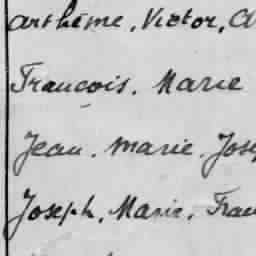 arthème, Victor, A
Francois. Marie
Jean. Marie. Josep
Joseph, Marie, Fran